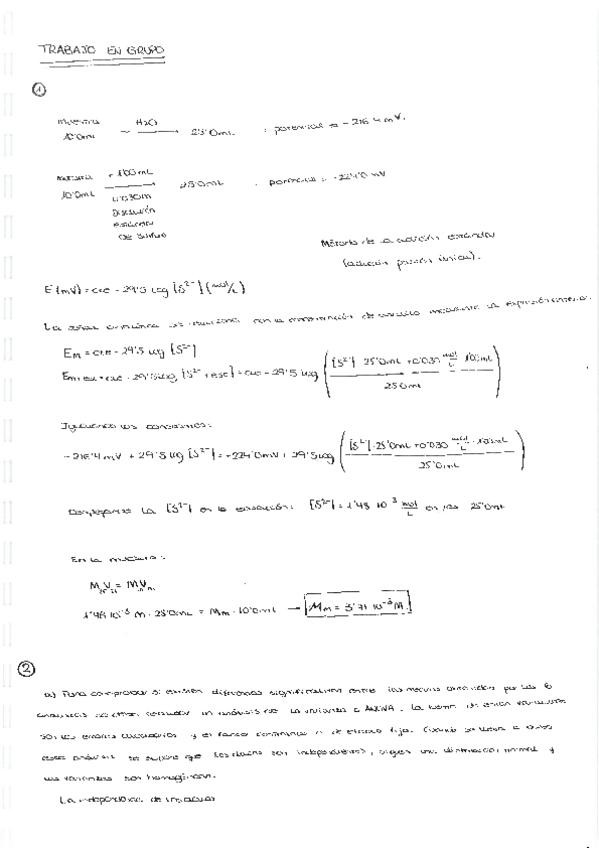 TRABAJO EN GRUPO
1
muestra H2O
10'0ml → 25'0mL : potencial = -216'4 mV.
muestra + 1'00mL
10'0mL → 25'0mL : potencial = -224'0 mV
0'030M
Disolución
estándar
de sulfuro
Método de la adición estándar
(adición patrón única).
E (mV) = cte - 29'5 log [S²⁻] (mol/L)
La señal se relaciona con la concentración de sulfuro mediante la expresión anterior.
Em = cte - 29'5 log [S²⁻]
Em+est = cte - 29'5 log [S²⁻ + est] = cte - 29'5 log ([S²⁻] 25'0mL + 0'030 mol/L · 1'00mL
25'0mL)
Igualando las constantes:
-216'4 mV + 29'5 log [S²⁻] = -224'0mV + 29'5 log ([S²⁻] · 25'0mL + 0'030 mol/L · 1'00mL
25'0mL)
Despejamos la [S²⁻] en la ecuación: [S²⁻] = 1'48 10⁻³ mol/L en los 25'0mL
En la muestra:
M V = M V
1'48 10⁻³ M · 25'0mL = Mm · 10'0ml → Mm = 3'71 10⁻³ M.
2
a) Para comprobar si existen diferencias significativas entre las medias obtenidas por los 6
analistas un análisis de la varianza o ANOVA. La fuente de variación
son los errores aleatorios y el factor controlado o de efecto fijo. Cuando se lleva a cabo
este análisis se supone que los datos son independientes, siguen una distribución normal y
las varianzas son homogéneas.
La independencia de